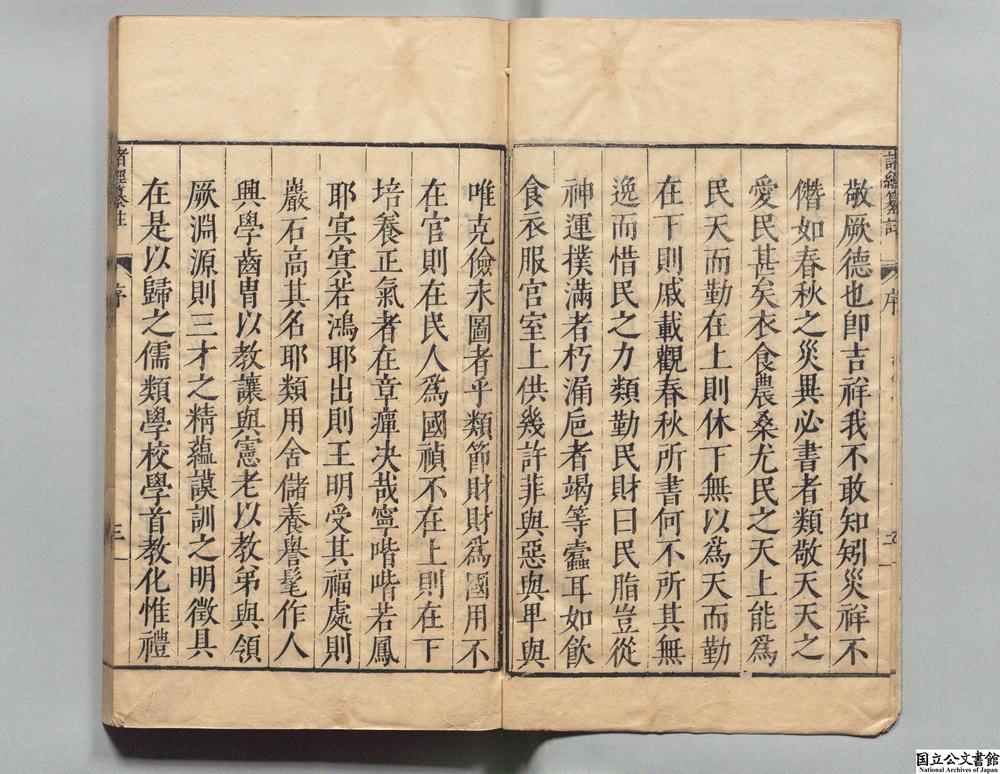 敬厥德也卽吉祥我不敢知矧災祥不
僭如春秋之災異必書者類敬天天之
愛民甚矣衣食農桑尤民之天上能爲
民天而勤在上則休下無以爲天而勤
在下則戚載觀春秋所書何不所其無
逸而惜民之力類勤民財曰民脂豈從
神運撲滿者朽漏巵者竭等蠹耳如飲
食衣服宮室上供幾許菲與惡與卑與
唯克儉未圖者乎類節財財爲國用不
在官則在民人爲國禎不在上則在下
培養正氣者在章癉决哉寧喈喈若鳳
耶寘寘若鴻耶出則王明受其福處則
巖石高其名耶類用舍儲養譽髦作人
興學齒胄以教讓與憲老以教弟與領
厥淵源則三才之精蘊謨訓之明徵具
在是以歸之儒類學校學首教化惟禮
諸經纂註
序
三
国立公文書館
National Archives of Japan